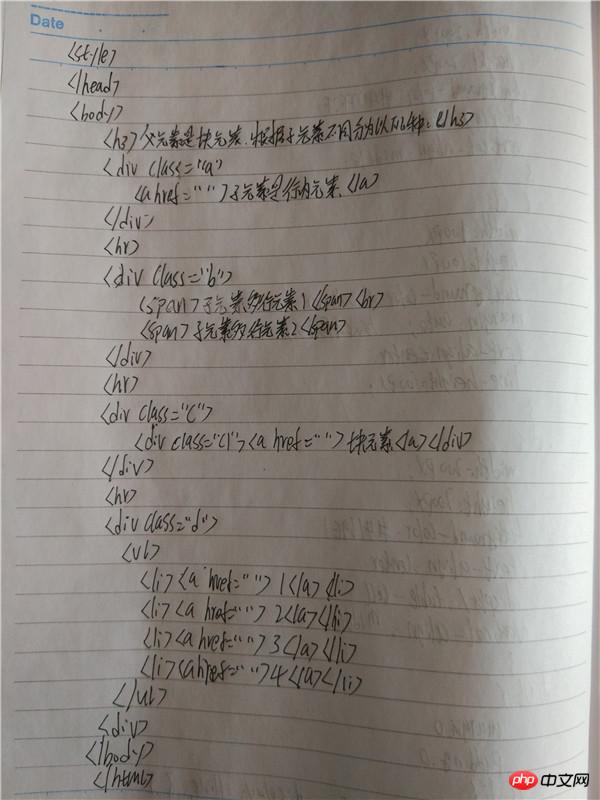 Date
<style>
</head>
<body>
<h3>父元素是块元素,根据子元素不同分为以下4种:</h3>
<div class="a"
<a href=" ">子元素是行内元素,</a>
</div>
<hr>
<div class="b">
<span>子元素多行元素1</span><br>
<span>子元素多行元素2</span>
</div>
<hr>
<div class="c">
<div class="c1"><a href=" ">块元素</a></div>
</div>
<hr>
<div class="d">
<ul>
<li><a href=" ">1</a></li>
<li><a href=" ">2</a></li>
<li><a href=" ">3</a></li>
<li><a href=" ">4</a></li>
</ul>
<div>
</body>
</html>
php 中文网